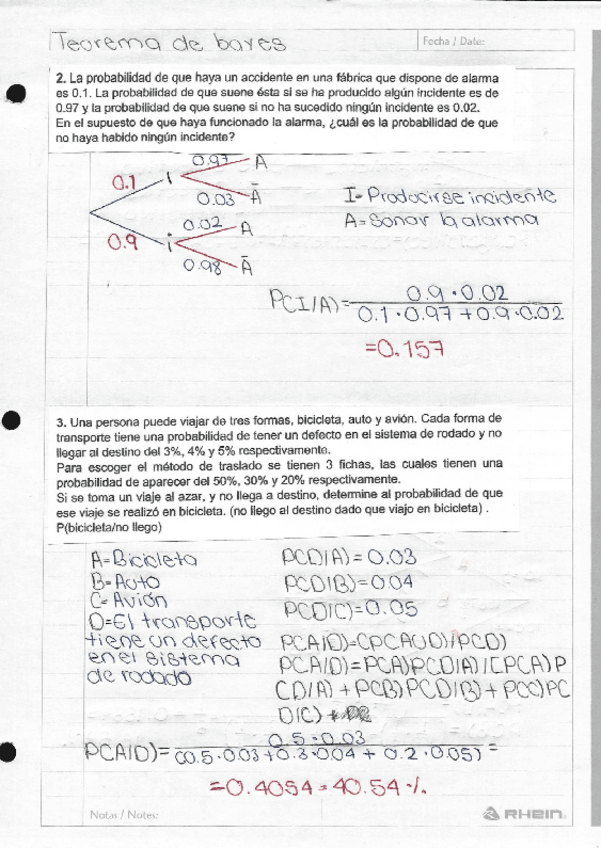 Teorema de bayes
Fecha / Date:
2. La probabilidad de que haya un accidente en una fábrica que dispone de alarma
es 0.1. La probabilidad de que suene ésta si se ha producido algún incidente es de
0.97 y la probabilidad de que suene si no ha sucedido ningún incidente es 0.02.
En el supuesto de que haya funcionado la alarma, ¿cuál es la probabilidad de que
no haya habido ningún incidente?
0.97 A
0.1 I
0.03 Ā
0.02 A
0.9 i
0.98 Ā
I= Producirse incidente
A= Sonar la alarma
P(I/A)= 0.9 · 0.02
0.1 · 0.97 + 0.9 · 0.02
=0.157
3. Una persona puede viajar de tres formas, bicicleta, auto y avión. Cada forma de
transporte tiene una probabilidad de tener un defecto en el sistema de rodado y no
llegar al destino del 3%, 4% y 5% respectivamente.
Para escoger el método de traslado se tienen 3 fichas, las cuales tienen una
probabilidad de aparecer del 50%, 30% y 20% respectivamente.
Si se toma un viaje al azar, y no llega a destino, determine al probabilidad de que
ese viaje se realizó en bicicleta. (no llego al destino dado que viajo en bicicleta) .
P(bicicleta/no llego)
A= Bicicleta
B= Auto
C= Avión
D= El transporte
tiene un defecto
en el sistema
de rodado
P(D|A) = 0.03
P(D|B) = 0.04
P(D|C) = 0.05
P(A|D)=(P(A∩D)/P(D)
P(A|D)=P(A)P(D|A)/[P(A)P
(D/A) + P(B)P(D|B) + P(C)P(
D|C)
P(A|D)= 0.5 · 0.03
(0.5 · 0.03 + 0.3 · 0.04 + 0.2 · 0.05) =
=0.4054 = 40.54 %
Notas / Notes:
RHEIN